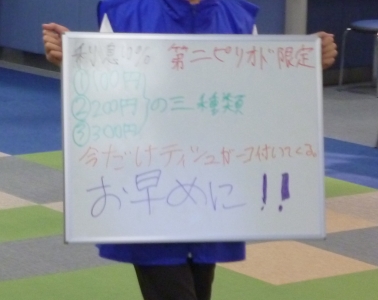 利息10% 第二ピリオド限定
①100円
②200円 の三種類
③300円
今だけティシュが一コ付いてくる
お早めに!!